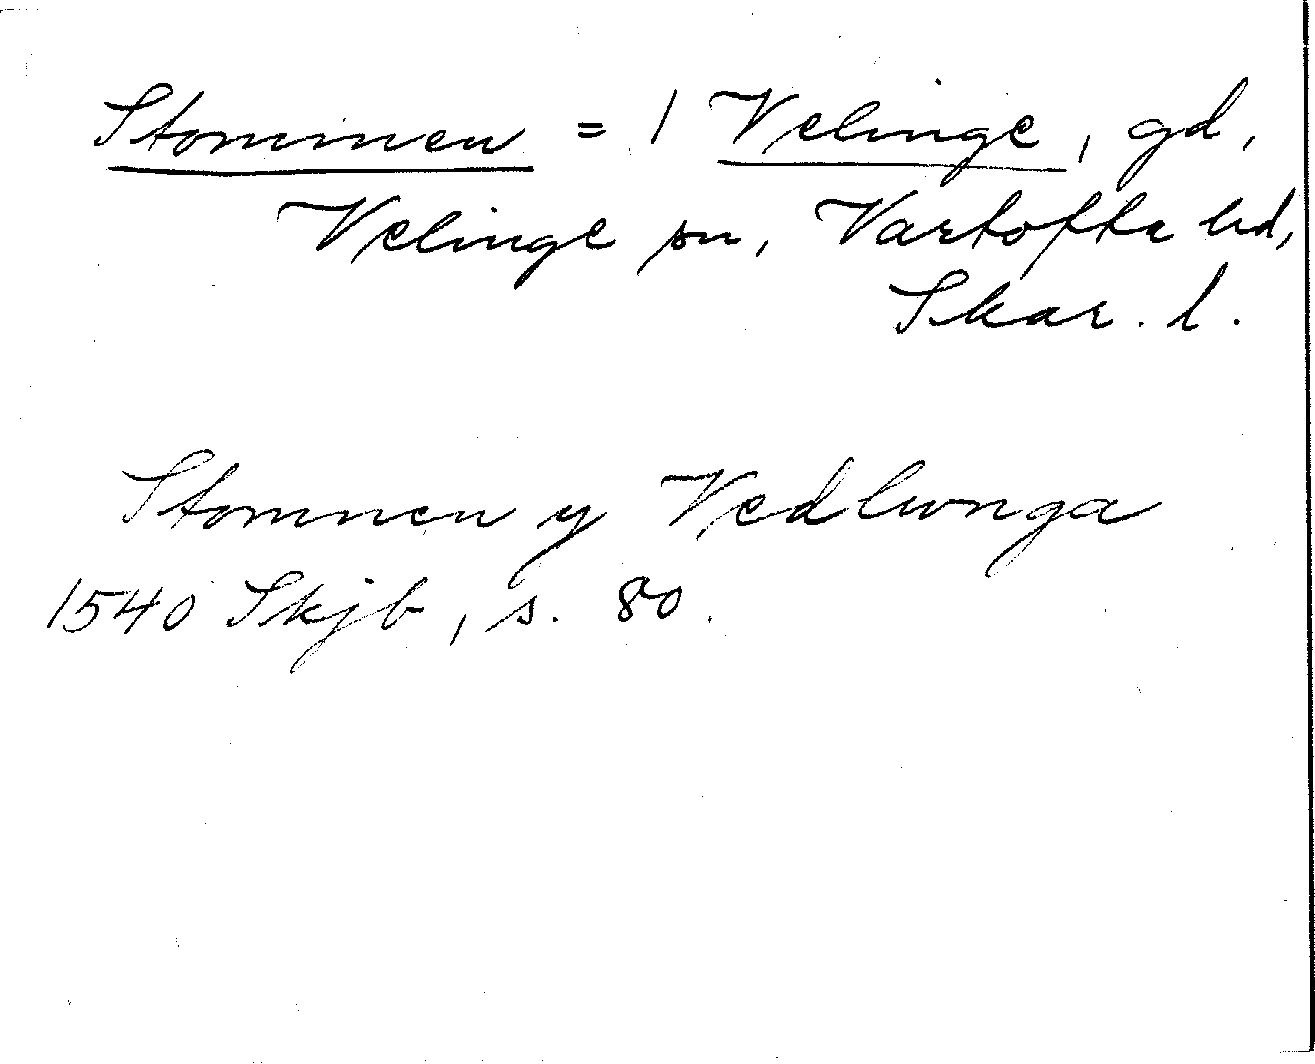 Stommen = 1 Velinge, gd,
Velinge sn, Vartofta hd,
Skar. l.
Stomnen y Vedlunga
1540 Skjb, s. 80.